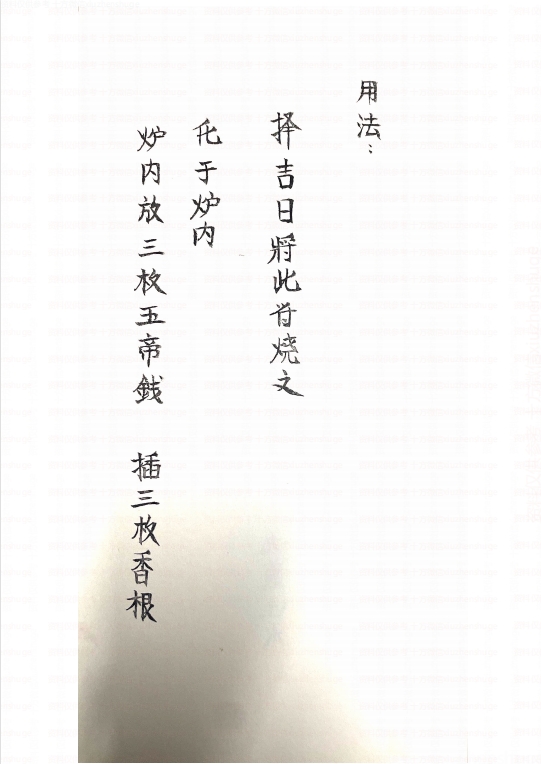 用法：
择吉日將此符烧文
化于炉内
炉内放三枚五帝銭
插三枚香根